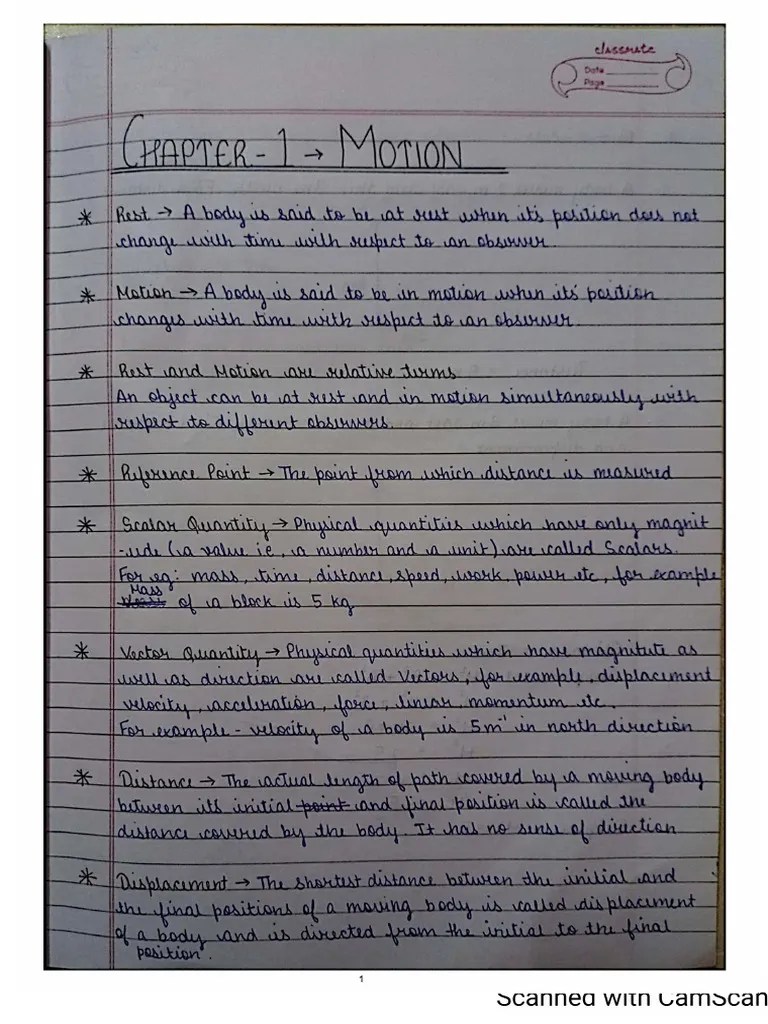 classmate
Date
Page
CHAPTER - 1 → MOTION
* Rest → A body is said to be at rest when it's position does not
change with time with respect to an observer.
* Motion → A body is said to be in motion when its' position
changes with time with respect to an observer.
* Rest and Motion are relative terms
An object can be at rest and in motion simultaneously with
respect to different observers.
* Reference Point → The point from which distance is measured
* Scalar Quantity → Physical quantities which have only magnit
-ude (a value i.e, a number and a unit) are called Scalars.
For eg: mass, time, distance, speed, work, power etc, for example
Mass
of a block is 5 kg
* Vector Quantity → Physical quantities which have magnitute as
well as direction are called Vectors, for example, displacement
velocity, acceleration, force, linear momentum etc.
For example - velocity of a body is 5m⁻¹ in north direction
* Distance → The actual length of path covered by a moving body
between its initial point and final position is called the
distance covered by the body. It has no sense of direction
* Displacement → The shortest distance between the initial and
the final positions of a moving body is called displacement
of a body and is directed from the initial to the final
position.
1
Scanned with CamScan